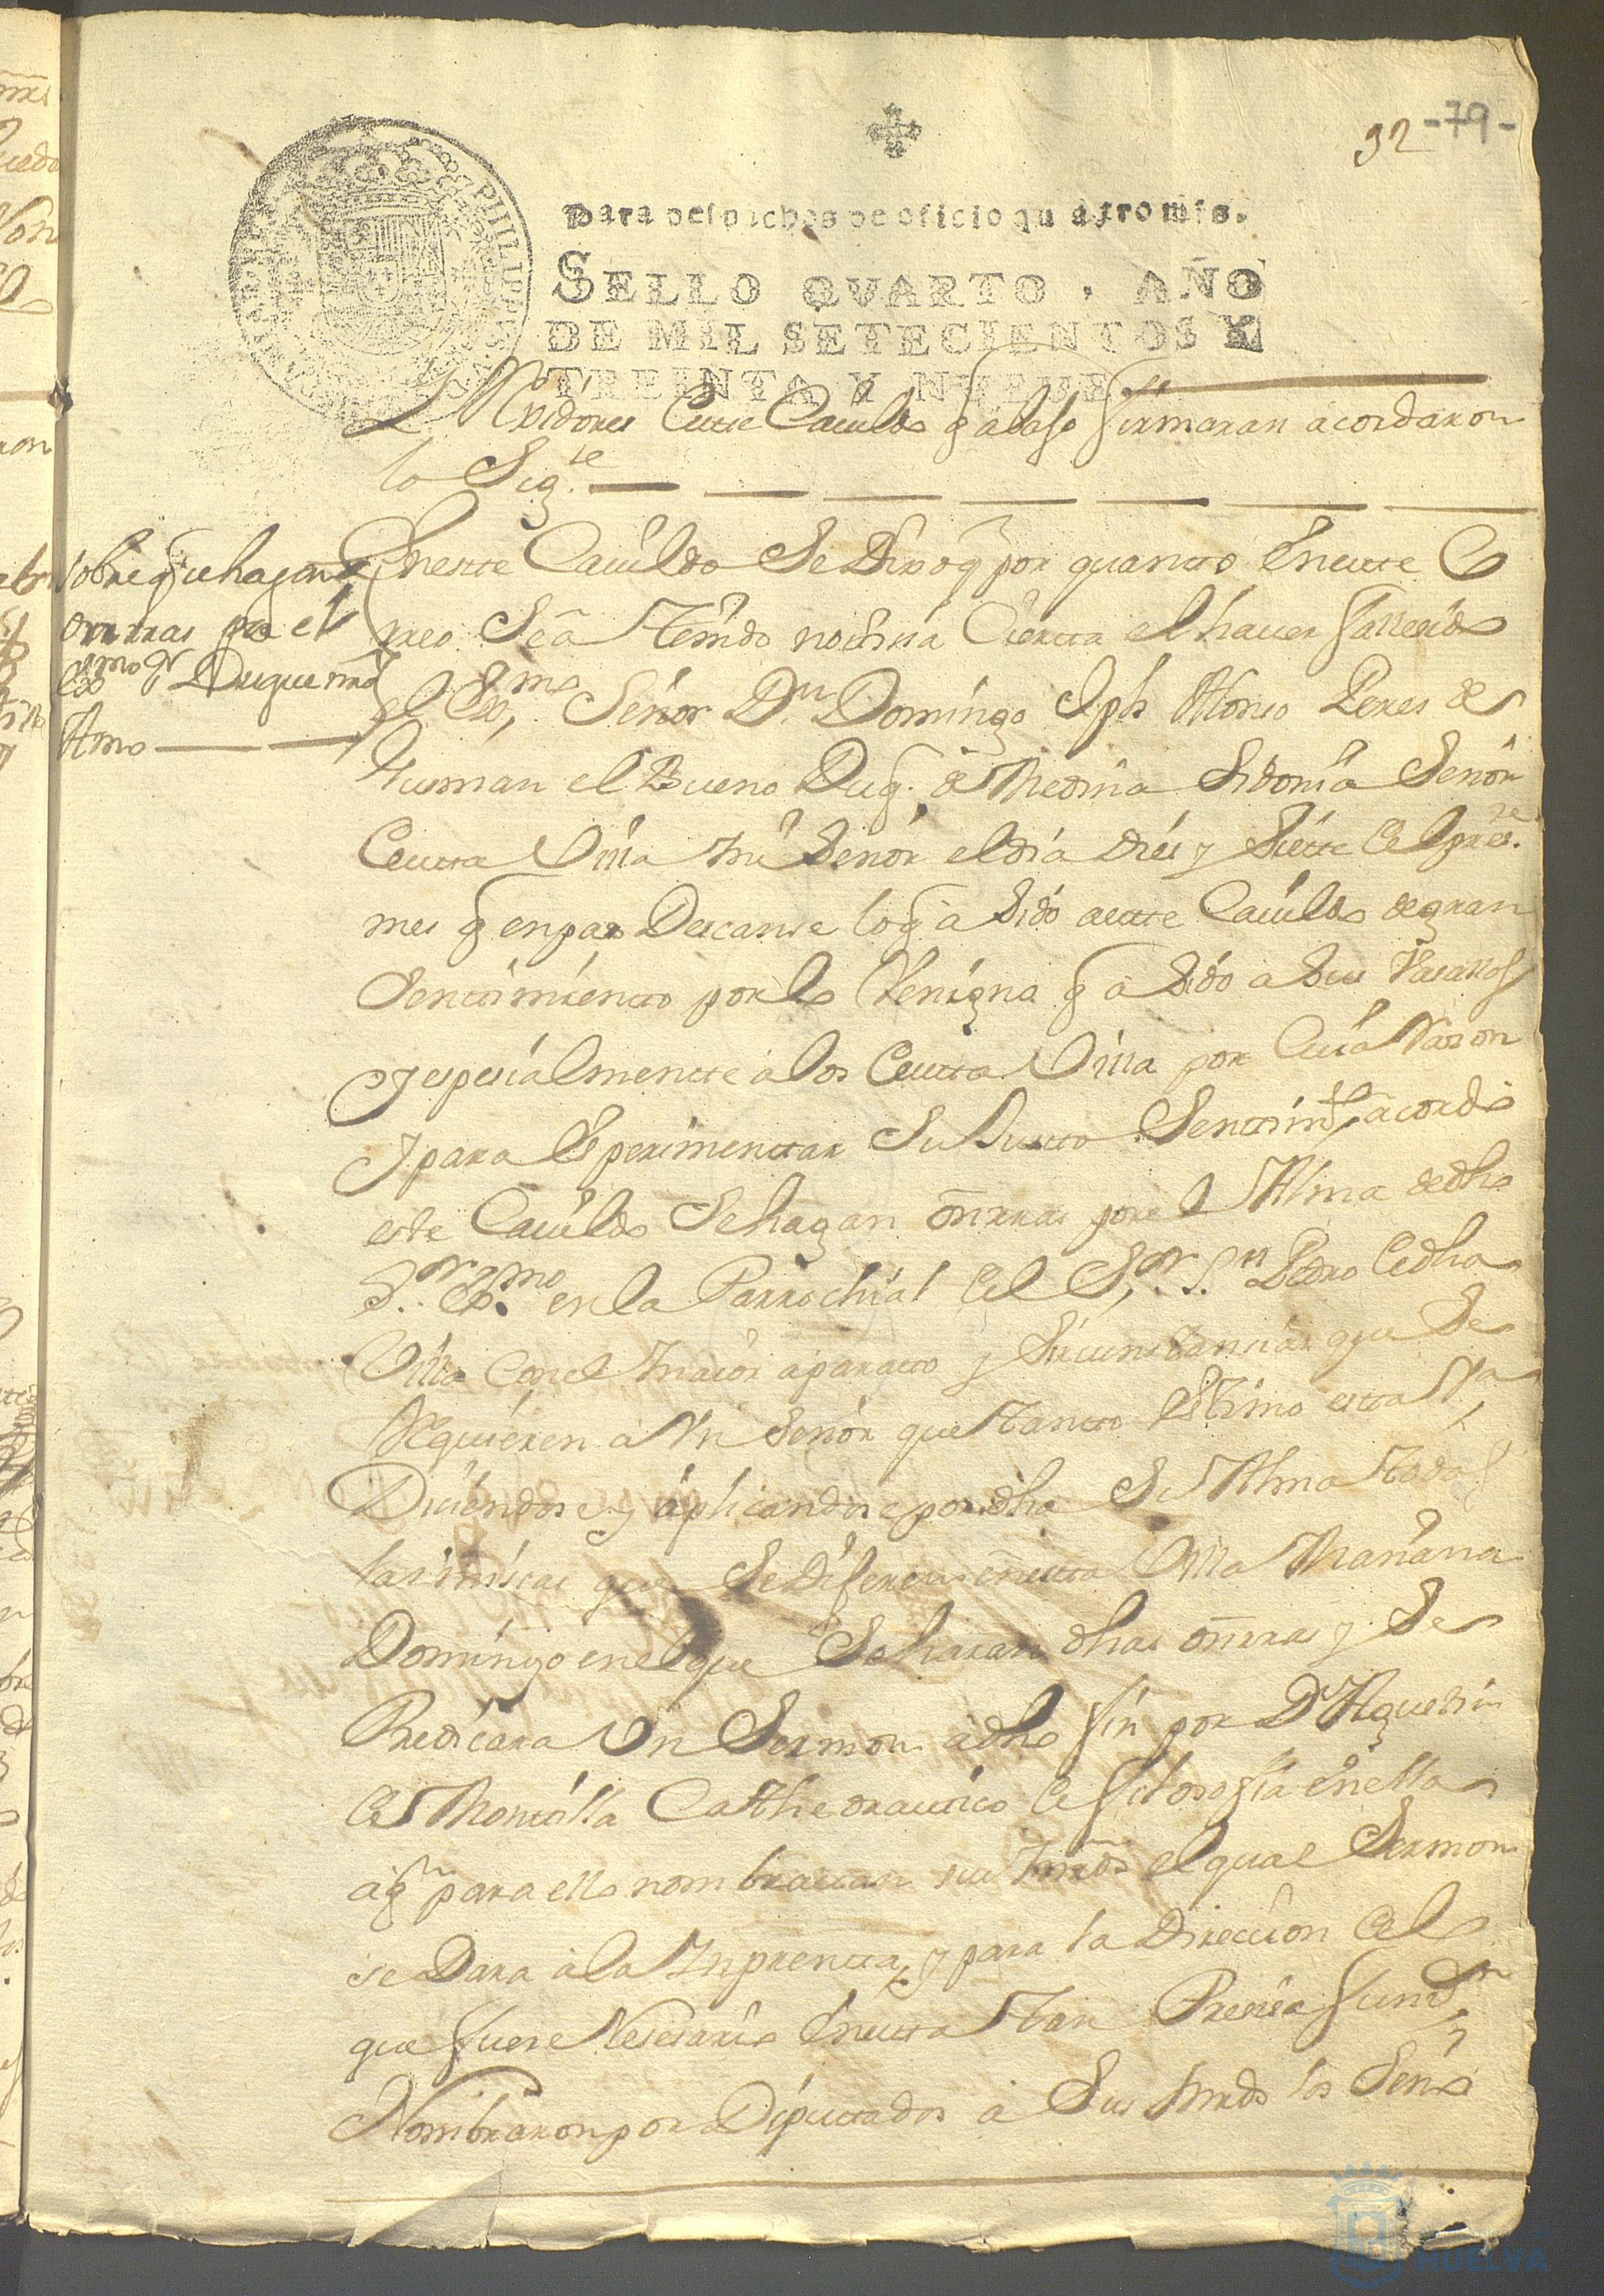 92 -79-
Para despachos de oficio quatro mrs.
SELLO QVARTO, AÑO
DE MIL SETECIENTOS Y
TREINTA Y NUEVE.
PHILIPP
Rexidores deste Cauildo q abajo firmaran acordaron
lo Sig.te
sobre q se hagan
onrras por el
Exmo Sr Duque mi
Amo
En este Cauildo Se Dixo q por quanto en este Co
rreo Se a tenido notisia Cierta el hauer fallesido
el Ex.mo Señor D.n Domingo Jph Alonso Peres de
Gusman el Bueno Duq. de Medina Sidonia Señor
desta Villa mi Señor el dia dies y Siette del pres.te
mes q en pas Descanse lo q a Sido a este Cauildo de gran
Sentimiento por lo Venigno q a Sido a Sus Vasallos
y espesialmente a los desta Villa por Cuia Rason
y para Esperimentar Su Justo Sentim.to acordo
este Cauildo Se hagan onrras por el Alma de dho
S.or Ex.mo en la Parrochial del S.or S.n Pedro de dha
Villa Con el maior aparato y Sircunstansias que Se
Requieren a Un Señor que tanto Estimo esta V.a
Disiendose y aplicandose por dha Su Alma todas
las misas que Se dijeren en esta Villa Mañana
Domingo en el que Se haran dhas onrras y Se
Predicara Un Sermon a dho fin por D.n Agustin
de Montilla Cathedratico de filosofia en ella
a q.n para ello nombrauan sus mrds el qual Sermon
se Dara a la Inprenta, y para la Direccion del
que fuere Nesesario En esta tan Presisa funs.on
Nombraron por Diputados a Sus mrds los Señs
HUELVA